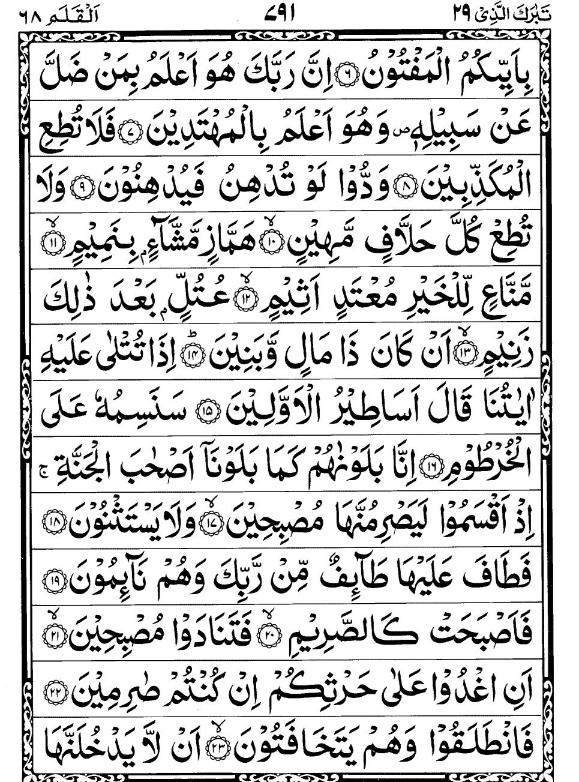 تَبٰرَكَ الَّذِیْ ٢٩ ٧٩١ اَلْقَلَم ٦٨
بِاَىِّىكُمُ الْمَفْتُوْنُ ۝٦ اِنَّ رَبَّكَ هُوَ اَعْلَمُ بِمَنْ ضَلَّ
عَنْ سَبِيْلِهٖ ۪ وَهُوَ اَعْلَمُ بِالْمُهْتَدِيْنَ ۝٧ فَلَا تُطِعِ
الْمُكَذِّبِيْنَ ۝٨ وَدُّوْا لَوْ تُدْهِنُ فَيُدْهِنُوْنَ ۝٩ وَلَا
تُطِعْ كُلَّ حَلَّافٍ مَّهِيْنٍ ۙ۝١٠ هَمَّازٍ مَّشَّآءٍۭ بِنَمِيْمٍ ۙ۝١١
مَّنَّاعٍ لِّلْخَيْرِ مُعْتَدٍ اَثِيْمٍ ۙ۝١٢ عُتُلٍّۭ بَعْدَ ذٰلِكَ
زَنِيْمٍ ۙ۝١٣ اَنْ كَانَ ذَا مَالٍ وَّبَنِيْنَ ؕ۝١٤ اِذَا تُتْلٰى عَلَيْهِ
اٰيٰتُنَا قَالَ اَسَاطِيْرُ الْاَوَّلِيْنَ ۝١٥ سَنَسِمُهٗ عَلَى
الْخُرْطُوْمِ ۝١٦ اِنَّا بَلَوْنٰهُمْ كَمَا بَلَوْنَاۤ اَصْحٰبَ الْجَنَّةِ ۚ
اِذْ اَقْسَمُوْا لَيَصْرِمُنَّهَا مُصْبِحِيْنَ ۙ۝١٧ وَلَا يَسْتَثْنُوْنَ ۝١٨
فَطَافَ عَلَيْهَا طَآئِفٌ مِّنْ رَّبِّكَ وَهُمْ نَآئِمُوْنَ ۝١٩
فَاَصْبَحَتْ كَالصَّرِيْمِ ۙ۝٢٠ فَتَنَادَوْا مُصْبِحِيْنَ ۙ۝٢١
اَنِ اغْدُوْا عَلٰى حَرْثِكُمْ اِنْ كُنْتُمْ صٰرِمِيْنَ ۝٢٢
فَانْطَلَقُوْا وَهُمْ يَتَخَافَتُوْنَ ۙ۝٢٣ اَنْ لَّا يَدْخُلَنَّهَا